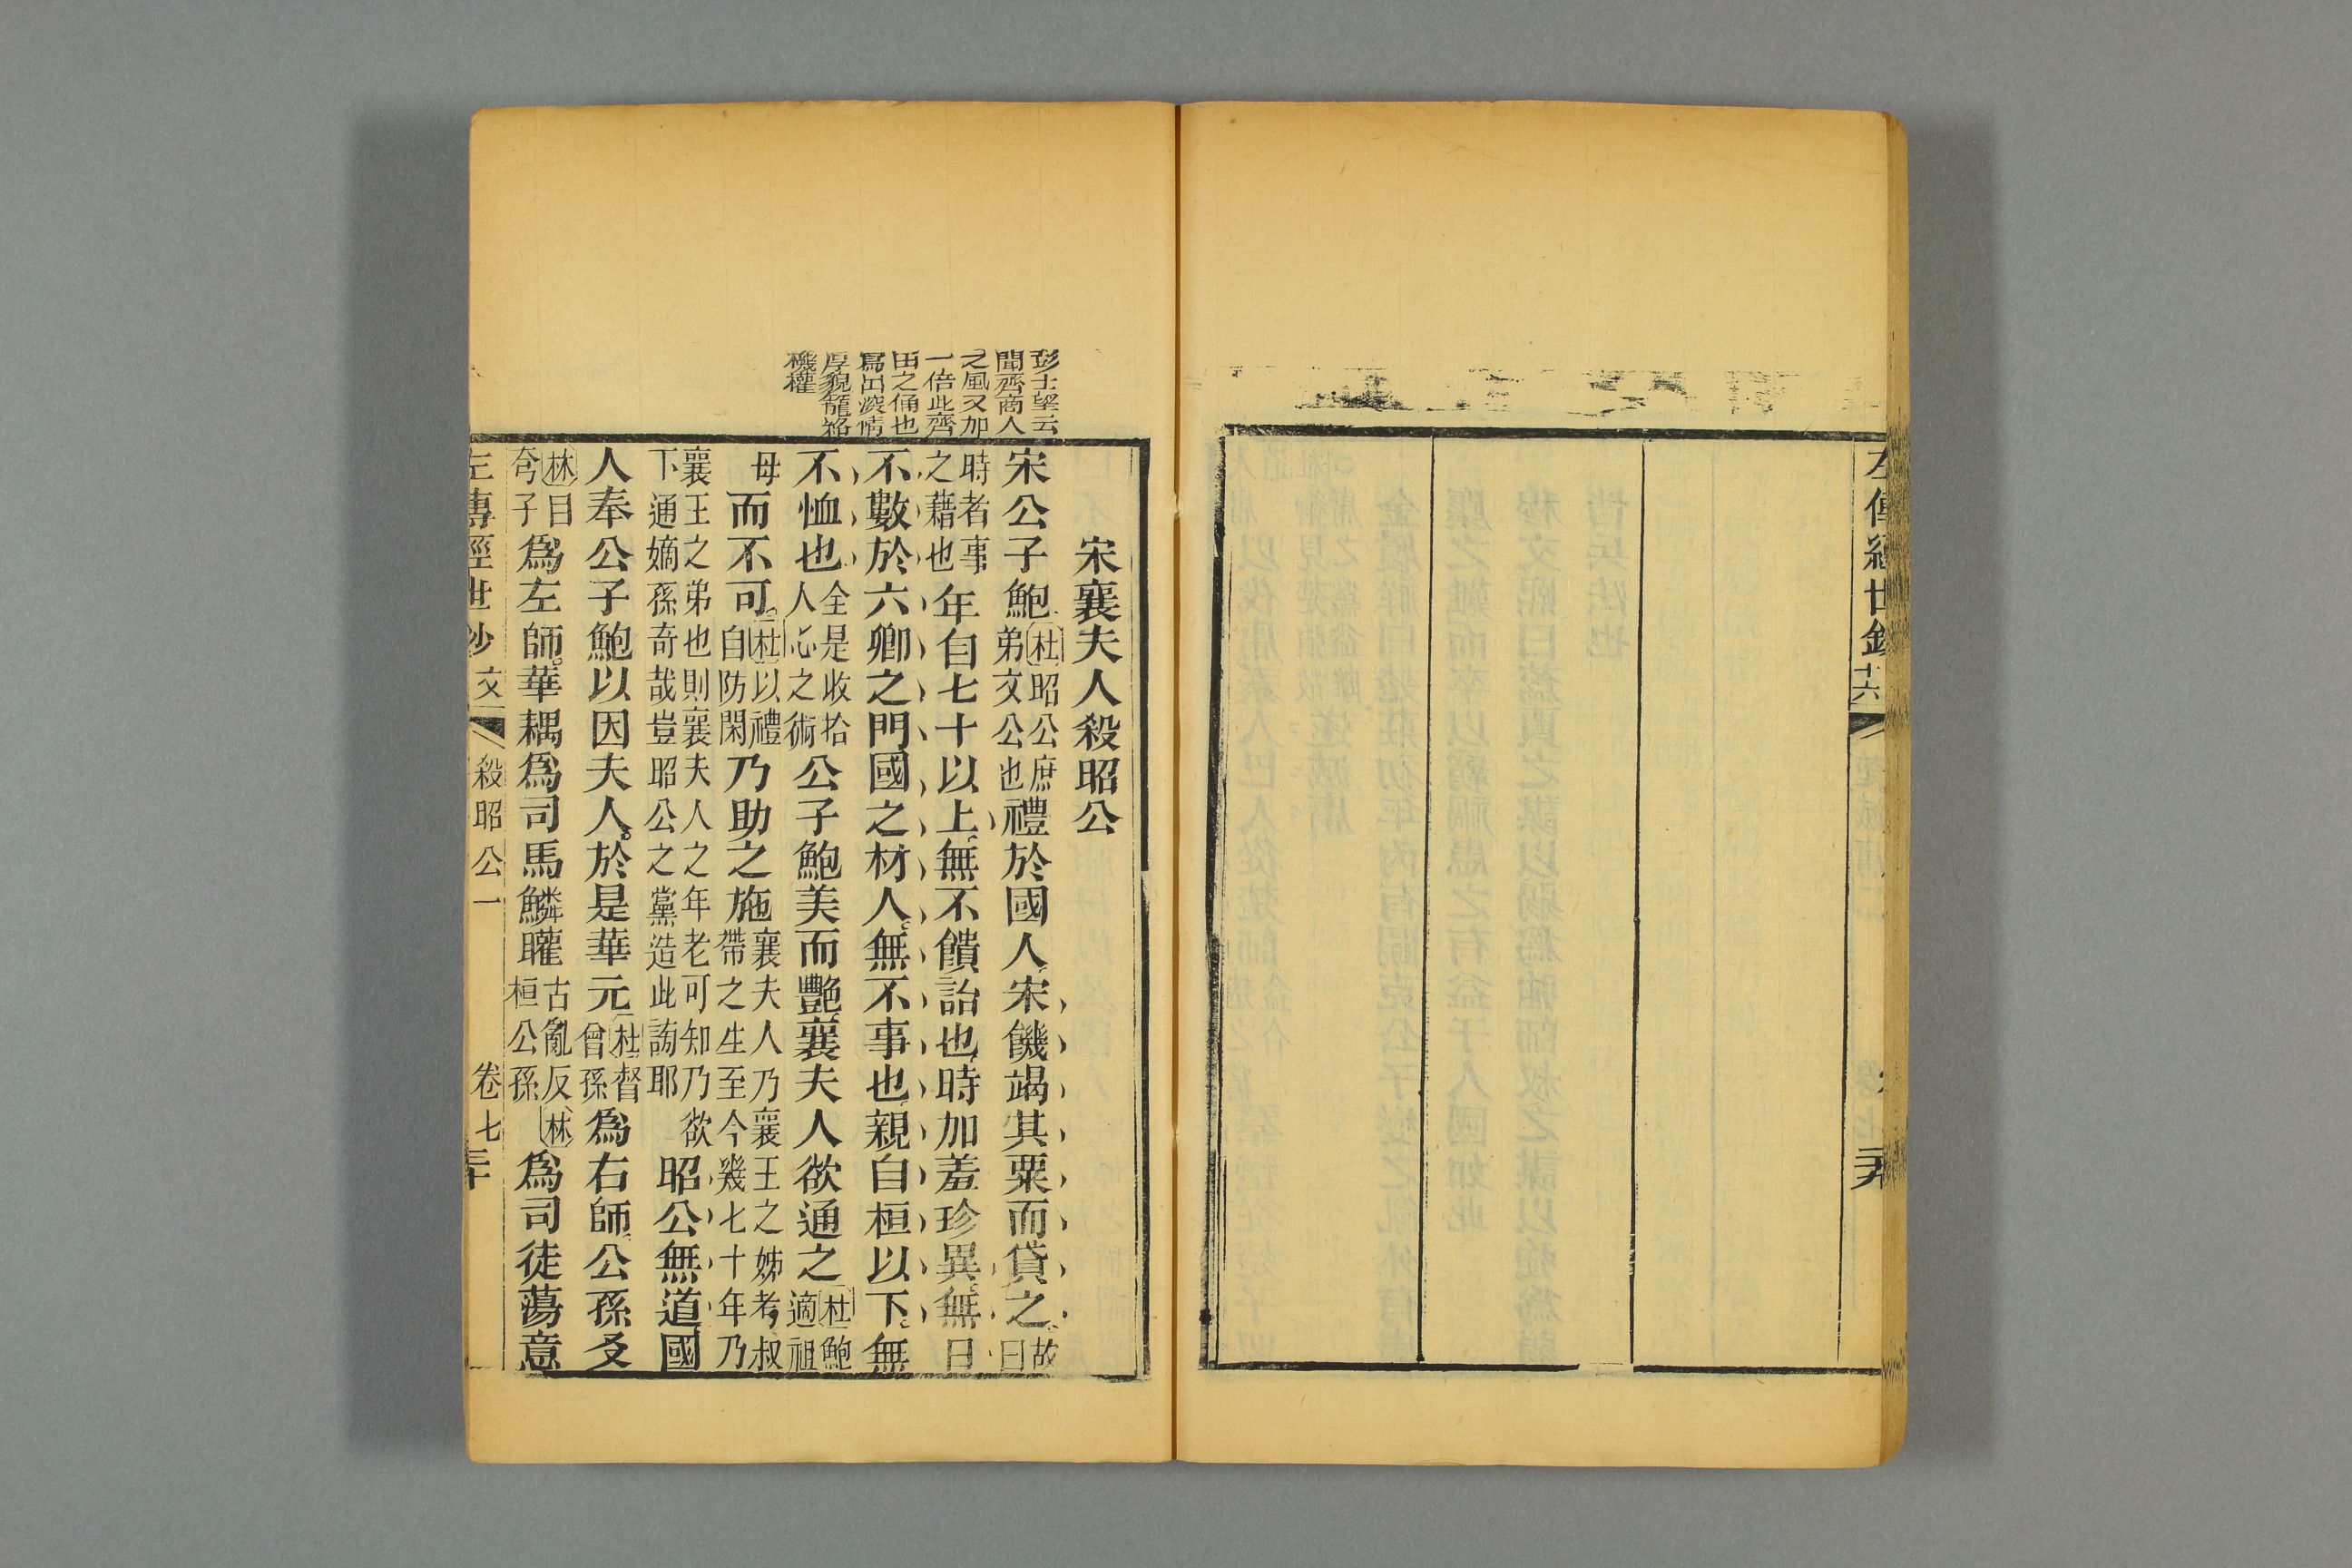 左傳經世鈔
十六
卷
彭士望云
聞齊商人
之風又加
一倍此齊
田之俑也
寫出深情
厚貌籠絡
機權
宋襄夫人殺昭公
宋公子鮑杜昭公庶弟文公也禮於國人宋饑竭其粟而貸之故曰
時者事之藉也年自七十以上無不饋詒也時加羞珍異無日
不數於六卿之門國之材人無不事也親自桓以下無
不恤也全是收拾人心之術公子鮑美而豔襄夫人欲通之杜鮑適祖
母而不可杜以禮自防閑乃助之施襄夫人乃襄王之姊考叔帶之生至今幾七十年乃
襄王之弟也則襄夫人之年老可知乃欲下通嫡孫奇哉豈昭公之黨造此謗耶昭公無道國
人奉公子鮑以因夫人於是華元杜督曾孫爲右師公孫友
林目夸子爲左師華耦爲司馬鱗矔古亂反林桓公孫爲司徒蕩意
左傳經世鈔 文 殺昭公一 卷七 三十